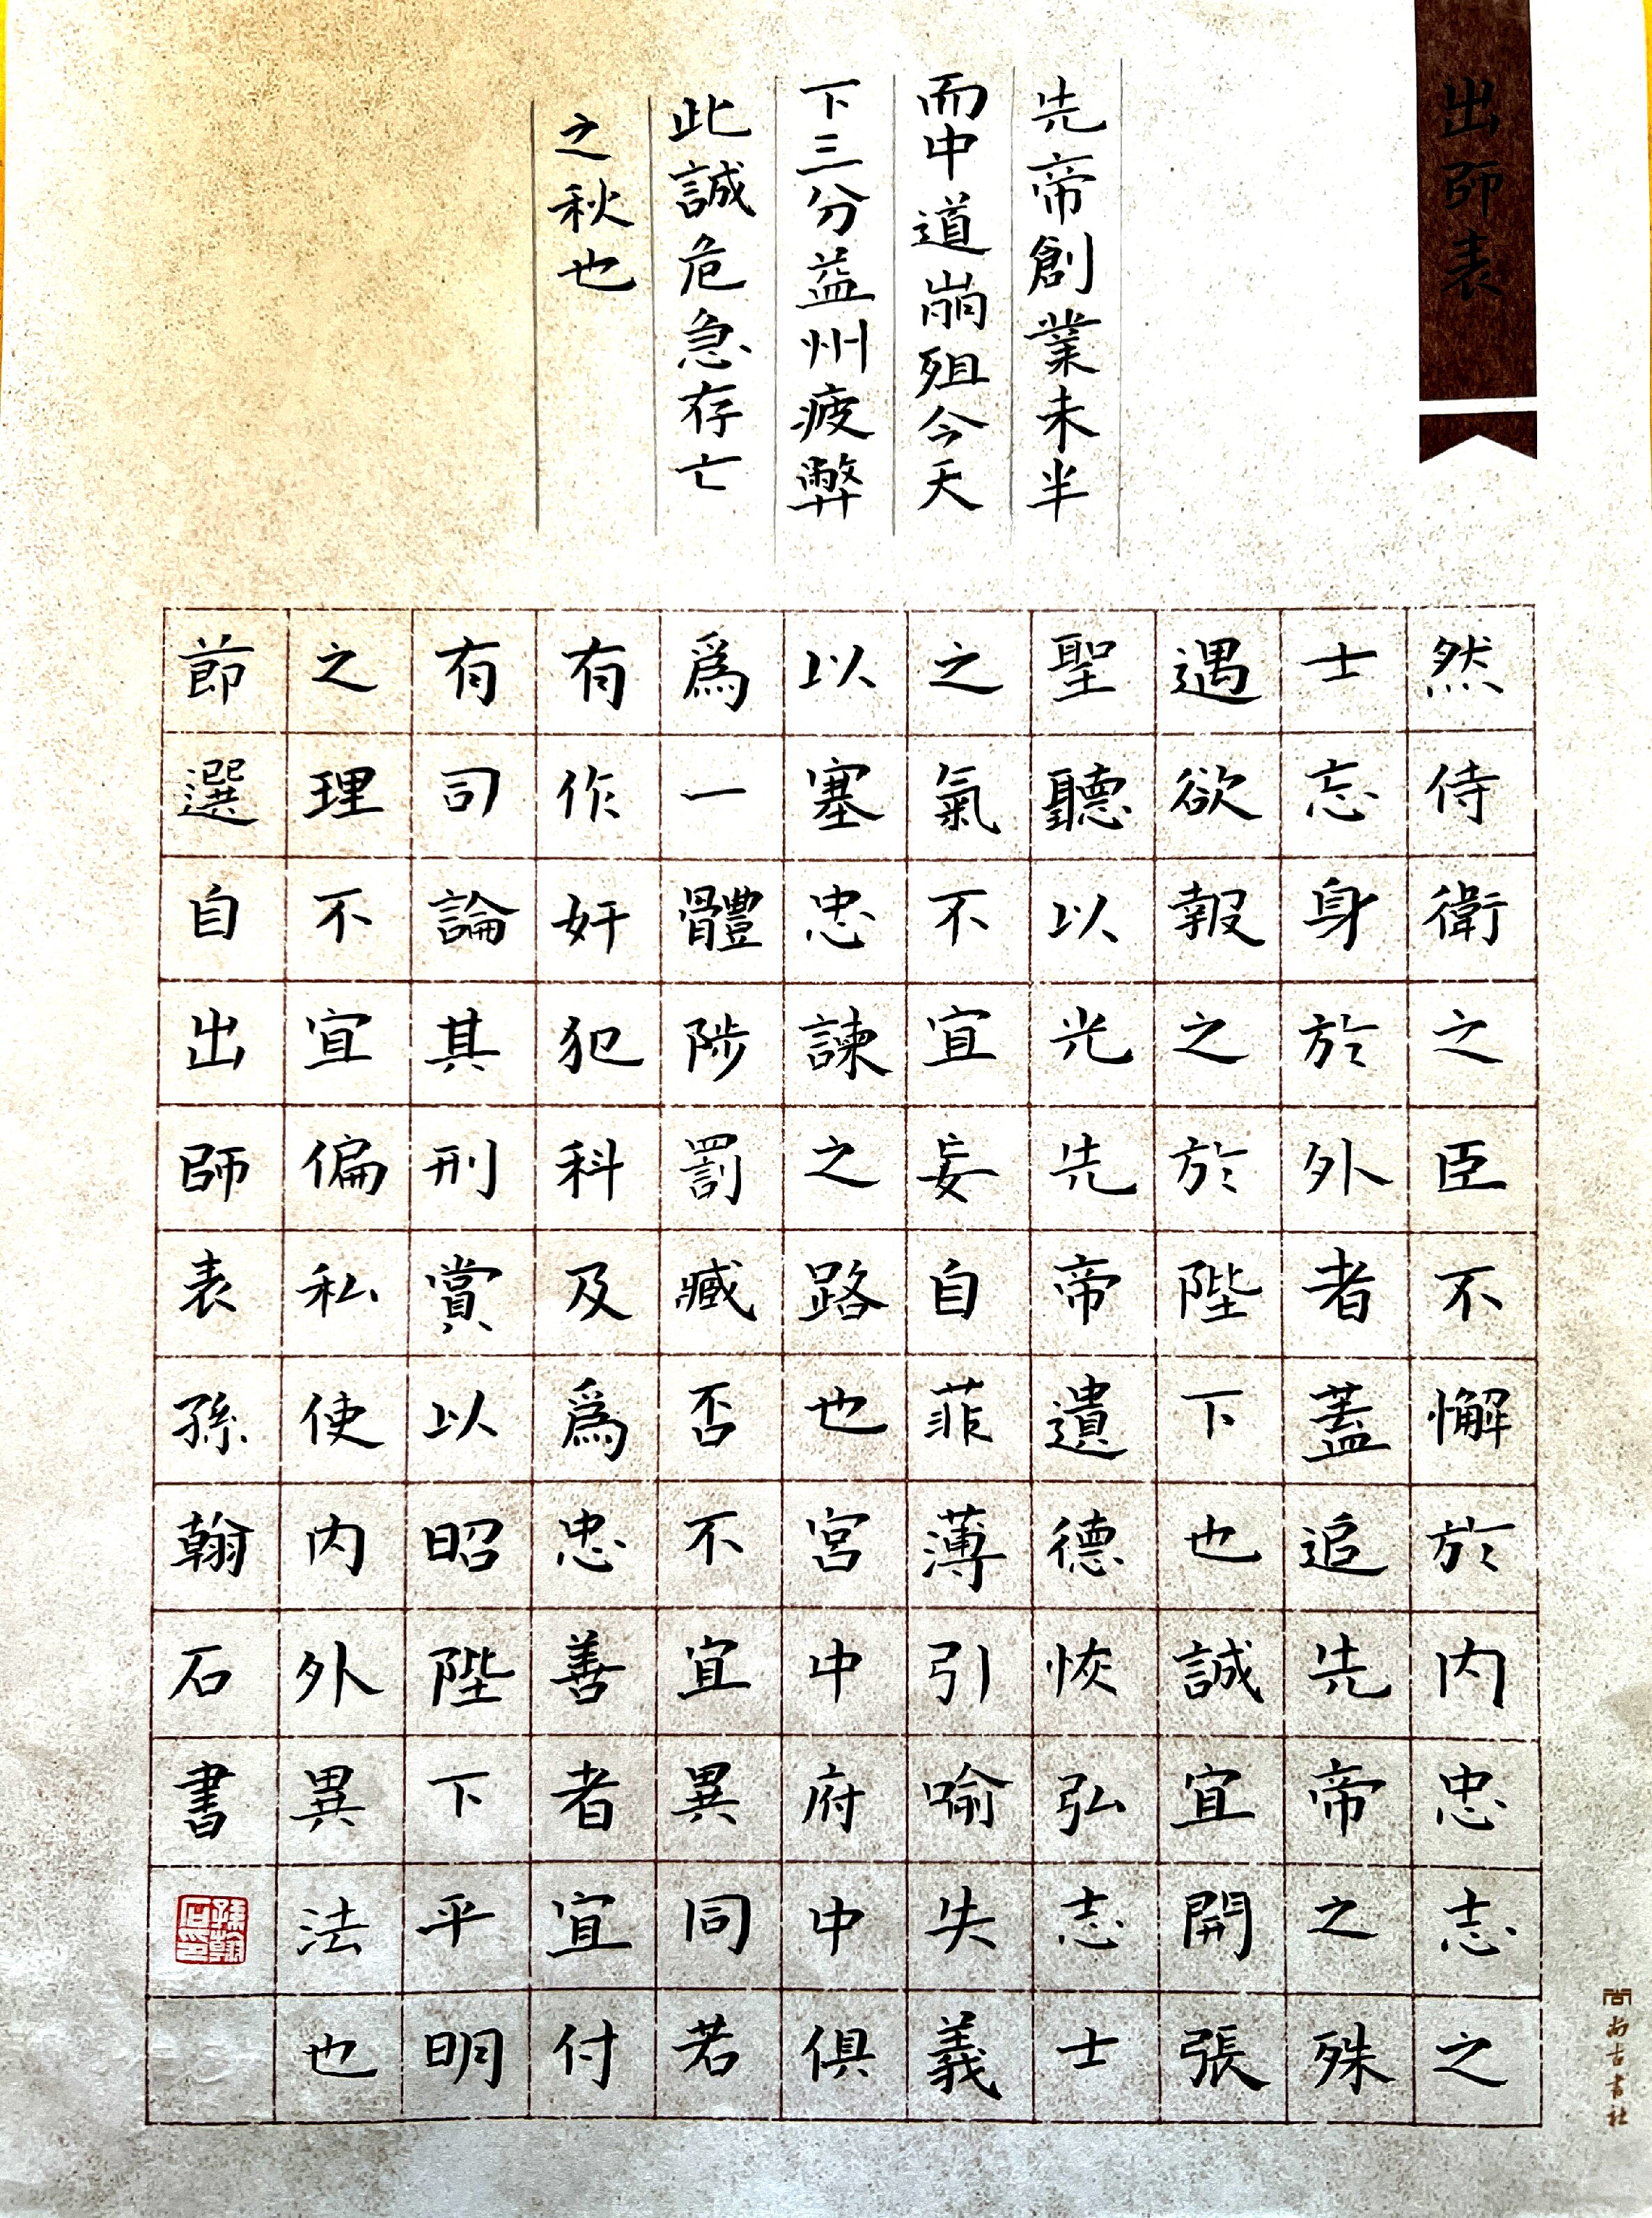 出師表
先帝創業未半
而中道崩殂今天
下三分益州疲弊
此誠危急存亡
之秋也
然侍衛之臣不懈於内忠志之
士忘身於外者蓋追先帝之殊
遇欲報之於陛下也誠宜開張
聖聽以光先帝遺德恢弘志士
之氣不宜妄自菲薄引喻失義
以塞忠諫之路也宮中府中俱
爲一體陟罰臧否不宜異同若
有作奸犯科及爲忠善者宜付
有司論其刑賞以昭陛下平明
之理不宜偏私使内外異法也
節選自出師表孫翰石書
孫翰石印
尚古書社